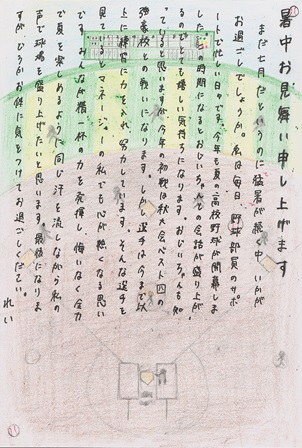 暑中お見舞い申し上げます
まだ七月だというのに猛暑が続く中、いかが
お過ごしでしょうか。私は毎日、野球部員のサポ
ートで忙しい日々です。今年も夏の高校野球が開幕しま
した。この時期になるとおじいちゃんとの会話が盛り上が
るのがとても嬉しい気持ちになります。おじいちゃんも知
っていると思いますが今年の初戦は秋大会ベスト四の
強豪校との戦いになります。しかし、選手は今まで以
上に練習に力を入れ、努力しています。そんな選手を
見ているとマネージャーの私でも心が熱くなる思い
です。みんなが精一杯の力を発揮し、悔いなく全力
で夏を楽しめるように同じ汗を流しながら私の
声で球場を盛り上げたいと思います。最後になりま
すが、どうかお体に気をつけてお過ごしください。
れい